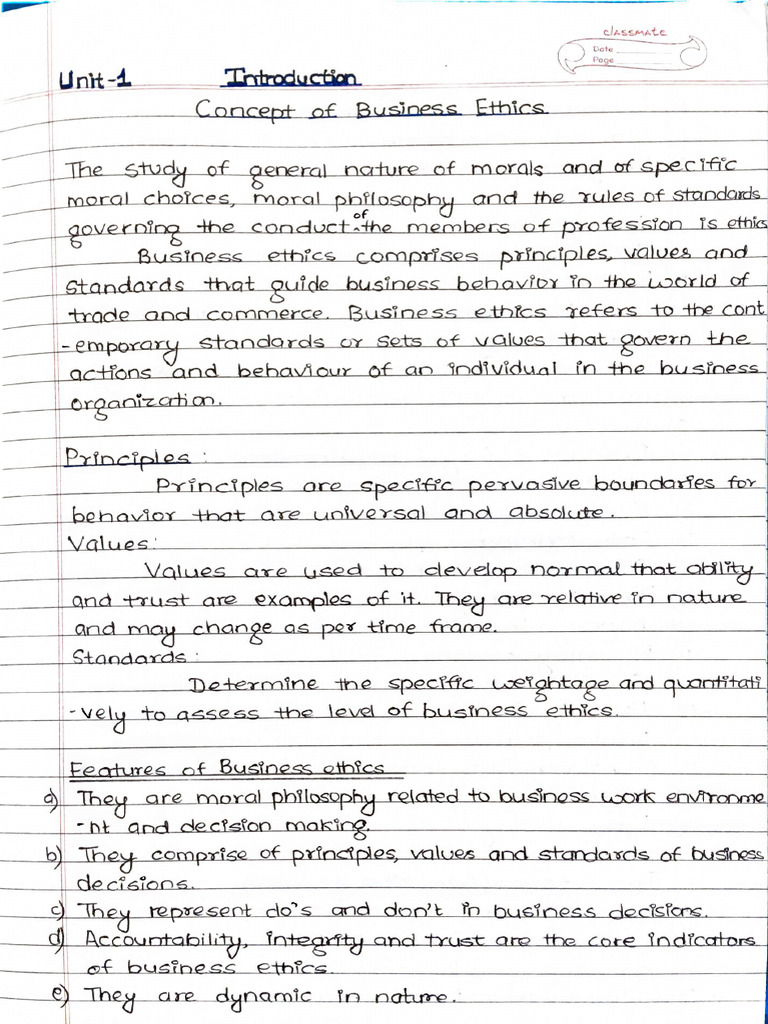 classmate
Date
Page
Unit-1 Introduction
Concept of Business Ethics
The study of general nature of morals and of specific
moral choices, moral philosophy and the rules of standards
governing the conduct of the members of profession is ethics
Business ethics comprises principles, values and
standards that guide business behavior in the world of
trade and commerce. Business ethics refers to the cont
-emporary standards or sets of values that govern the
actions and behaviour of an individual in the business
organization.
Principles :
Principles are specific pervasive boundaries for
behavior that are universal and absolute.
Values:
Values are used to develop normal that ability
and trust are examples of it. They are relative in nature
and may change as per time frame.
Standards :
Determine the specific weightage and quantitati
-vely to assess the level of business ethics.
Features of Business ethics
a) They are moral philosophy related to business work environme
-nt and decision making.
b) They comprise of principles, values and standards of business
decisions.
c) They represent do's and don't in business decisions.
d) Accountability, integrity and trust are the core indicators
of business ethics.
e) They are dynamic in nature.